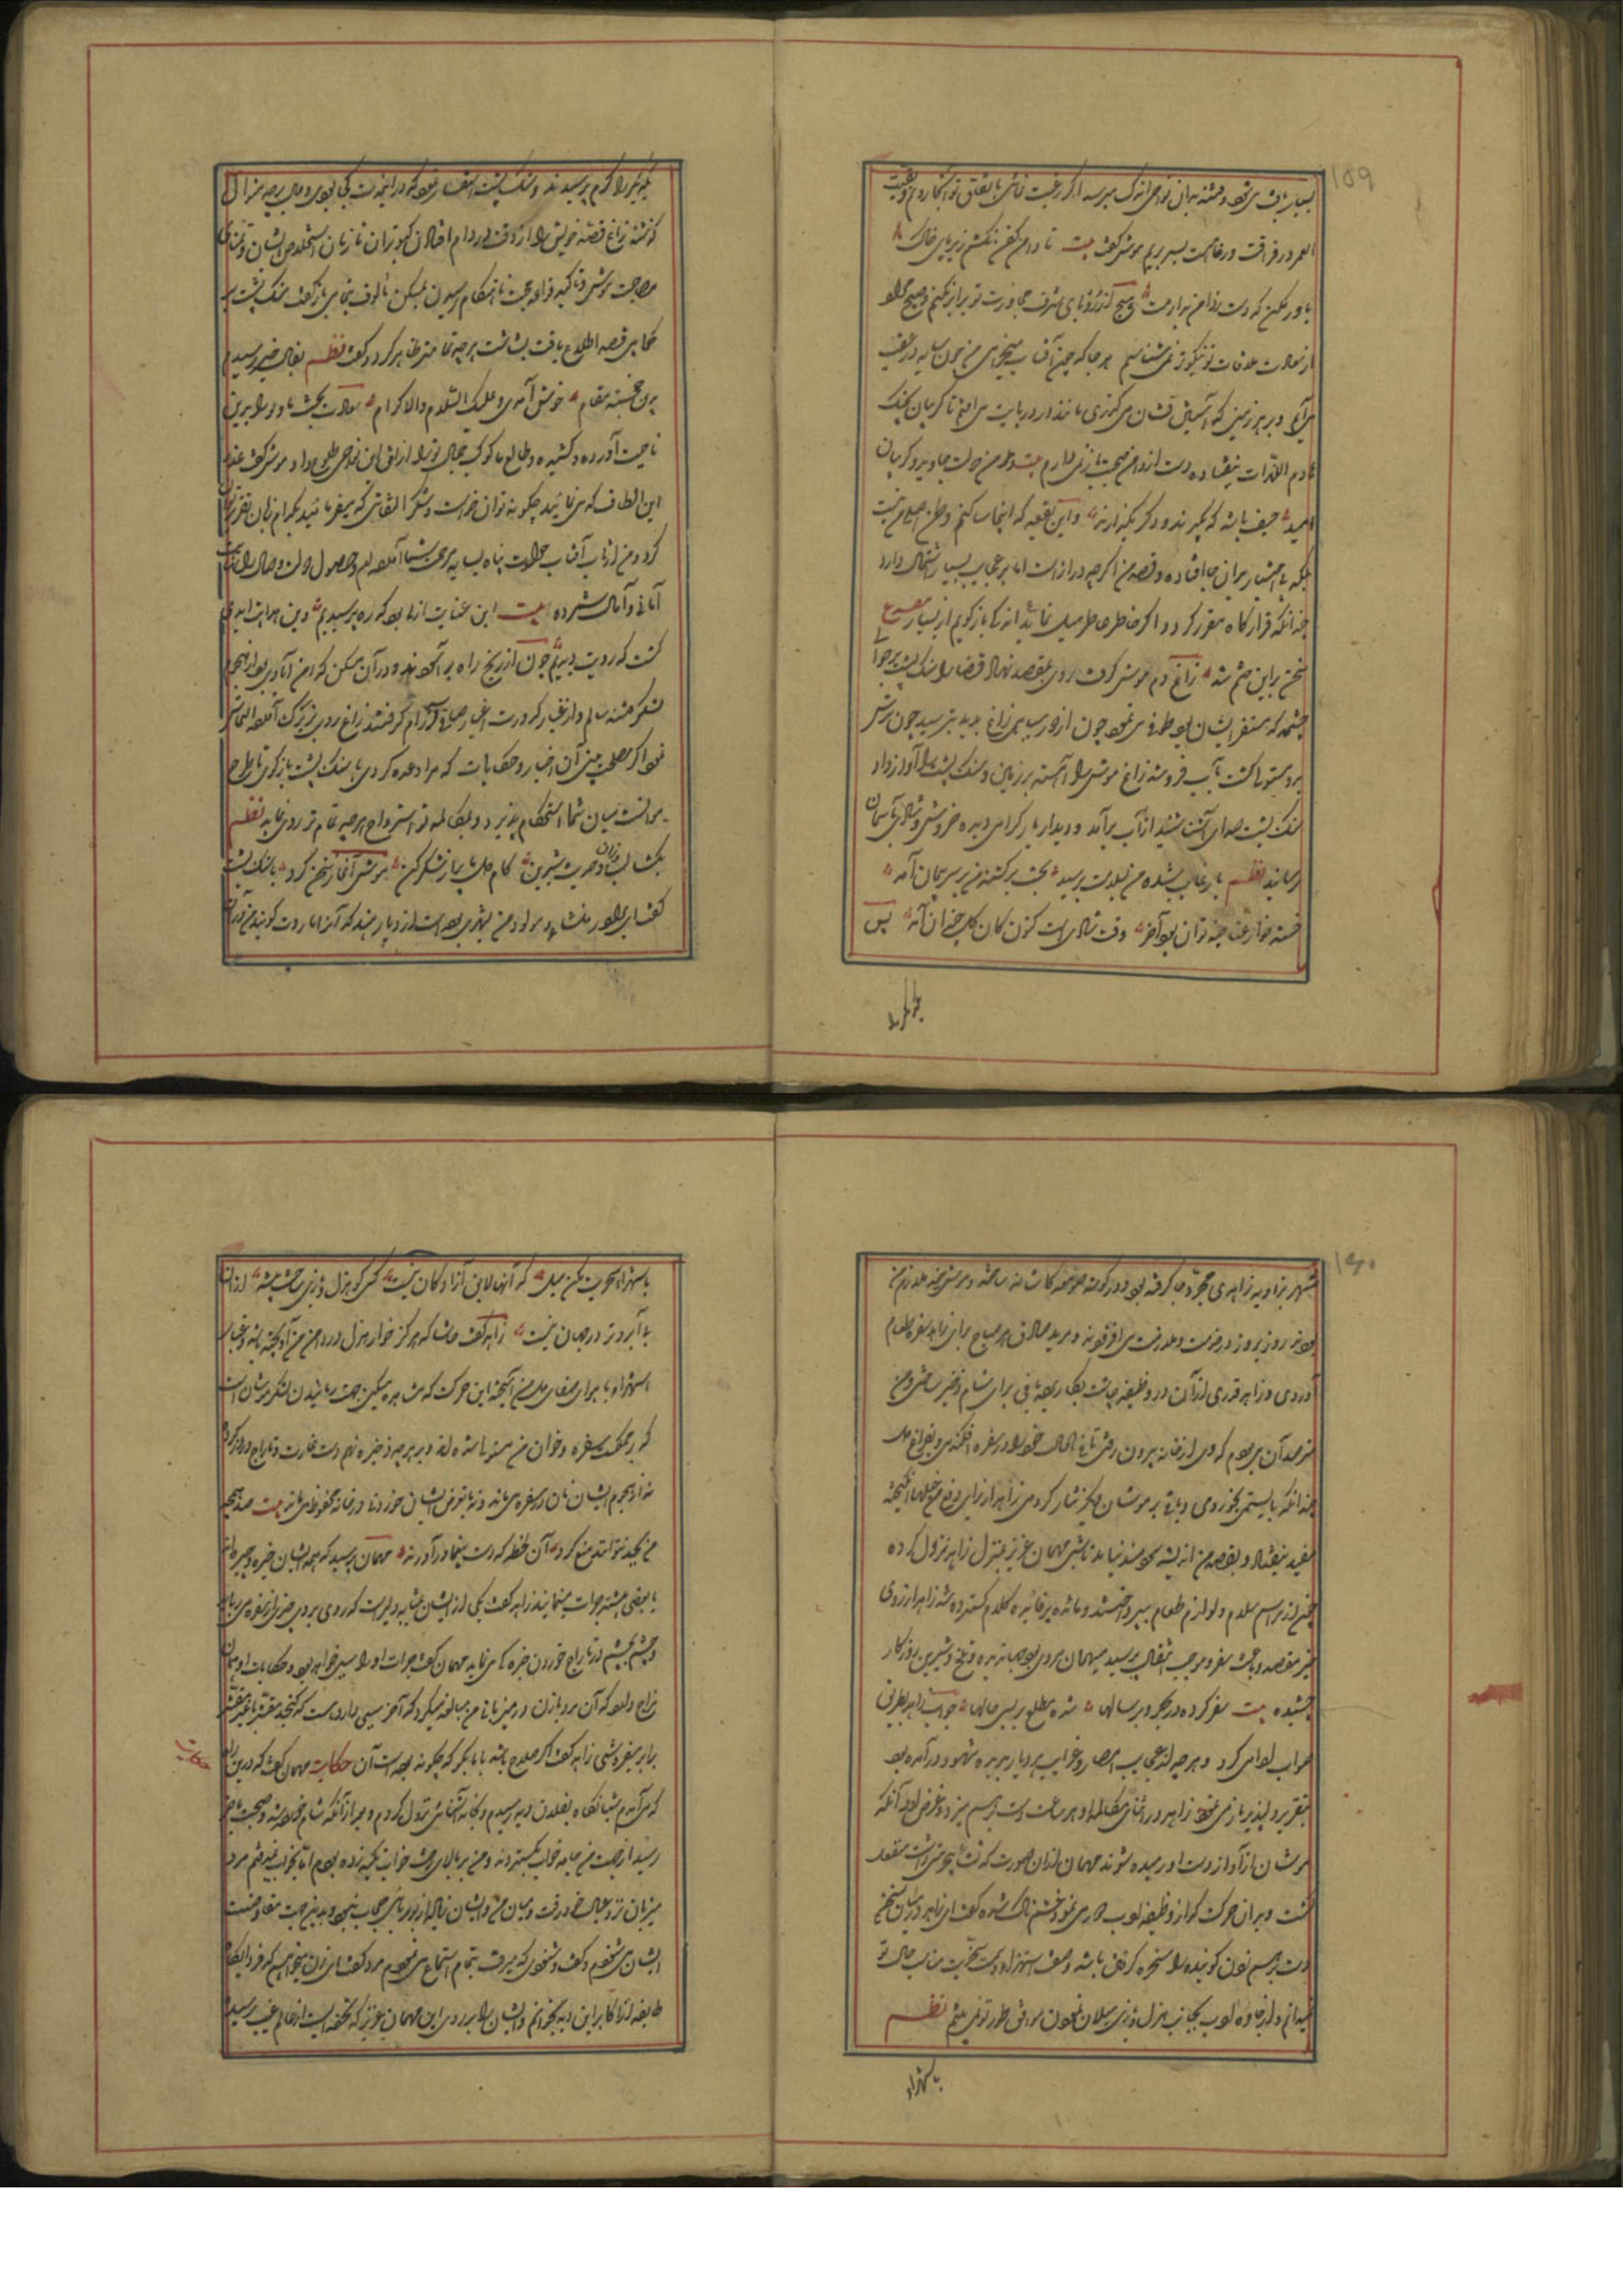 بسیار یافت می شود و فتنه بدان نواحی اندک میرسد اگر رغبت نمائی باتفاق تو آنجا روم و بقیت
العمر در فراغت و رفاهیت بسر بریم موش گفت بیت تا دامن کفن نکشم زیر پای خاک
باور مکن که دست ز دامن بدارمت و هیچ آرزو بای شرف مجاورت تو برابر نکنم و هیچ مطلو
از سعادت ملاقات تو نیکوتر نمی شناسم هر جا که چون آفتاب میخرامی من چون سایه در عقب
می آیم و بر هر زمینی که آستین فشان می گذری مانند دامن در پایت می افتم تا گریبان چنک
هادم اللذات نیفتاده دست از دامن صحبت باز نمی دارم بیت دامن دولت جاوید و گریبان
امید حیف باشد که بگیرند و دگر بگذارند و این بقعه که اینجا ساکنم وطن اصلی من نیست
بلکه بی اختیار بدان جا افتاده و قصه من اگرچه درازست اما بر عجایب بسیار اشتمال دارد
چندانکه قرارگاه مقرر گردد اگر خاطر خطیر میل نماید اندکی بازگویم از بسیار مصرع
سخن بر این ختم شد زاغ دم موش گرفت روی بمقصد نهاد قضا را سنک پشت بر حوالی
چشمه که مستقر ایشان بود طوفی می نمود چون از دور سیاهی زاغ بدید بترسید
فرو شد زاغ موش را آهسته بر زمین و سنک پشت را آواز داد
سنک پشت صدای آشنا شنید از آب برآمد و دیدار یار گرامی دیده خروش شادی بآسمان
رسانید نظم یار غایب شده من بسلامت برسید بخت برگشته من بر سر پیمان آمد
خسته خوار غنا چند توان بود آخر وقت شادی است کنون کان گل خندان آمد پس
یکدیگر را گرم پرسیدند و سنک پشت استفسار نمود که در این مدت کجا بودی و حال بر چه منوال
گذشت زاغ قصه خویش را از وقت در دام افتادن کبوتران تا زمان استخلاص ایشان و تمنای
مصاحبت موش و تاکید قواعد محبت تا هنگام رسیدن بمسکن مألوف بتمامی بازگفت سنک پشت بر
تمامی قصه اطلاع یافت بشاشت هر چه تمامتر ظاهر کرد و گفت نظم بفال خیر رسیدی
بدین خجسته مقام خوش آمدی و علیک السلام والاکرام سعادت بخت ما ترا بدین
ناحیت آورده و کشیده و طالع ما کوکب جمال ترا از افق این نواحی طلوع داد موش گفت عذر
این الطاف که می نمائید چگونه توان خواست و شکر الفاقی که میفرمائید بکدام زبان تقریر توان
کرد و من از تاب آفتاب حوادث پناه بسایه مرحمت شما آورده ام و حصول دولت وصال را نهایت
امانی و آمال شمرده بیت این عنایت ازلی بود که ره پرسیدیم وین هدایت ابدی
گشت که رویت دیدیم چون از رنج راه برآسودند و در آن مسکن که مامن آبادی بود از هجوم
لشکر فتنه سالم و از غبار کدورت اغیار صافی آرام گرفتند زاغ روی بزیرک آورده التماس
نمود اگر مصلحت بینی آن اخبار و حکایات که مرا وعده کردی با سنک پشت بازگوی تا طرح
موانست میان شما استحکام پذیرد و بمکالمه تو استرواح هر چه تمام تر روی نماید نظم
بگشا لب و زان حدیث شیرین کام دل ما پر از شکر کن موش آغاز سخن کرد با سنک پشت
گفت ای برادر منشاء و مولد من بشهری بوده است از دیار هند که آنرا ماروت گویند من در آن
برادر
شهر بزاویه زاهدی مجرد جا گرفته بودم و در گوشه صومعه کاشانه ساخته و موش چند ملازم من
بودند روز بروز در خدمت و ملازمت می افزودند و مرید صادق هر صباح برای زاهد سفره طعام
آوردی و زاهد قدری از آن در وظیفه چاشت بکار برده باقی برای شام ذخیره ساختی و من
مترصد آن می بودم که وی از خانه بیرون رفتی تا فی الحال خود را در سفره افکندمی و بفراغ دل
چندانکه بایستی بخوردمی و باقی بر موشان دیگر نثار کردمی زاهد از برای دفع من حیلها انگیخته
مفید نیفتاد و بقصد من اندیشه سودمند نیامد تا شبی مهمان عزیز بمنزل زاهد نزول کرده
چون از مراسم سلام و لوازم طعام بپرداختند و مائده پرفائده کلام گسترده شد زاهد از وی
خبر مقصد و باعث سفر و موجب انتقال پرسید مهمان مردی بود جهاندیده و تلخ و شیرین روزگار
چشیده بیت سفر کرده در بحر و بر سالها شده مطلع بر بسی حالها جواب زاهد بطریق
صواب ادا می کرد و هر چه از عجایب امصار و غرایب دیار دیده شهود در آمده بود
بتقریر دلپذیر باز می نمود زاهد در اثنای مکالمه او هر ساعت دست برهم میزد و غرض او آنکه
موشان از آواز دست او رمیده شوند مهمان از آن صورت که نشان بی حرمتی داشت منفعل
گشت و بدان حرکت که از وظیفه ادب دور می نمود خشمناک شده گفت ای زاهد در میان سخن
دست برهم زدن گوینده را سخره گرفتن باشد و صفت استهزا و سمت سخریت مناسب حال تو
نمیدانم و از جاده ادب بجانب هزل و هرزه میلان نمودن موافق طور تو نمی بینم نظم
باستهزا
باستهزا و سخریت مکن میل که آنها لایق آزادگان نیست کسی کو هزل و بازی ساخت پیشه از آن
بی آبروتر در جهان نیست زاهد گفت حاشا که هرگز خار هزل در دامن من آویخته باشد و غبار
استهزا با هوای صفای دل من آمیخته این حرکت که مشاهده میکنی جهت رمانیدن لشکر موشان است
که بر مملکت سفره و خوان من مستولی شده اند و بر هر چه ذخیره نهم دست غارت و تاراج دراز کرده
نه از هجوم ایشان نان در سفره می ماند و نه با تعرض ایشان خوردنی در خانه محفوظ می ماند بیت صد همچو
من بجهد نتواند منع کرد آن خطه که دست بیغما درآورند مهمان پرسید که همه ایشان خیره و چیره اند
یا بعضی بیشتر جرات مینمایند زاهد گفت یکی از ایشان بمثابه دلیر است که روی بروی چیز از سفره می رباید
و چشم بچشم در تاراج خوردن خیره گی می نماید مهمان گفت جرات او را سببی خواهد بود و حکایت او همان
مزاج دارد که آن مرد با زن در میزبان من مبالغه میکرد که آخر سببی دارد که کنجد مقشر با غیر مقشر
برابر میفروشی زاهد گفت اگر صلاح باشد باما بگو که چگونه بوده است آن حکایت مهمان گفت که در این راه
حکایت
که می آمدم شبانگاه بفلان دیه رسیدم و بخانه آشنائی نزول کردم و بعد از آنکه شام خورده شد و صحبت بآخر
رسید از جهت من جامه خواب بگستردند و من بر بالای رخت خواب تکیه زده بودم اما بخواب نمیرفتم مرد
میزبان نزد عیال خود رفت و میان من و ایشان زیاده از بوریائی حجاب نبود و بدین جهت مفاوضت
ایشان می شنودم و گفت و شنودی که میرفت بتمام استماع می نمودم مرد گفت ای زن میخواهم که فردا یکدو
طایفه از اکابر این دیه بخوانم و ایشان را بر روی این مهمان عزیز که تحفه ایست از عالم غیب رسیده